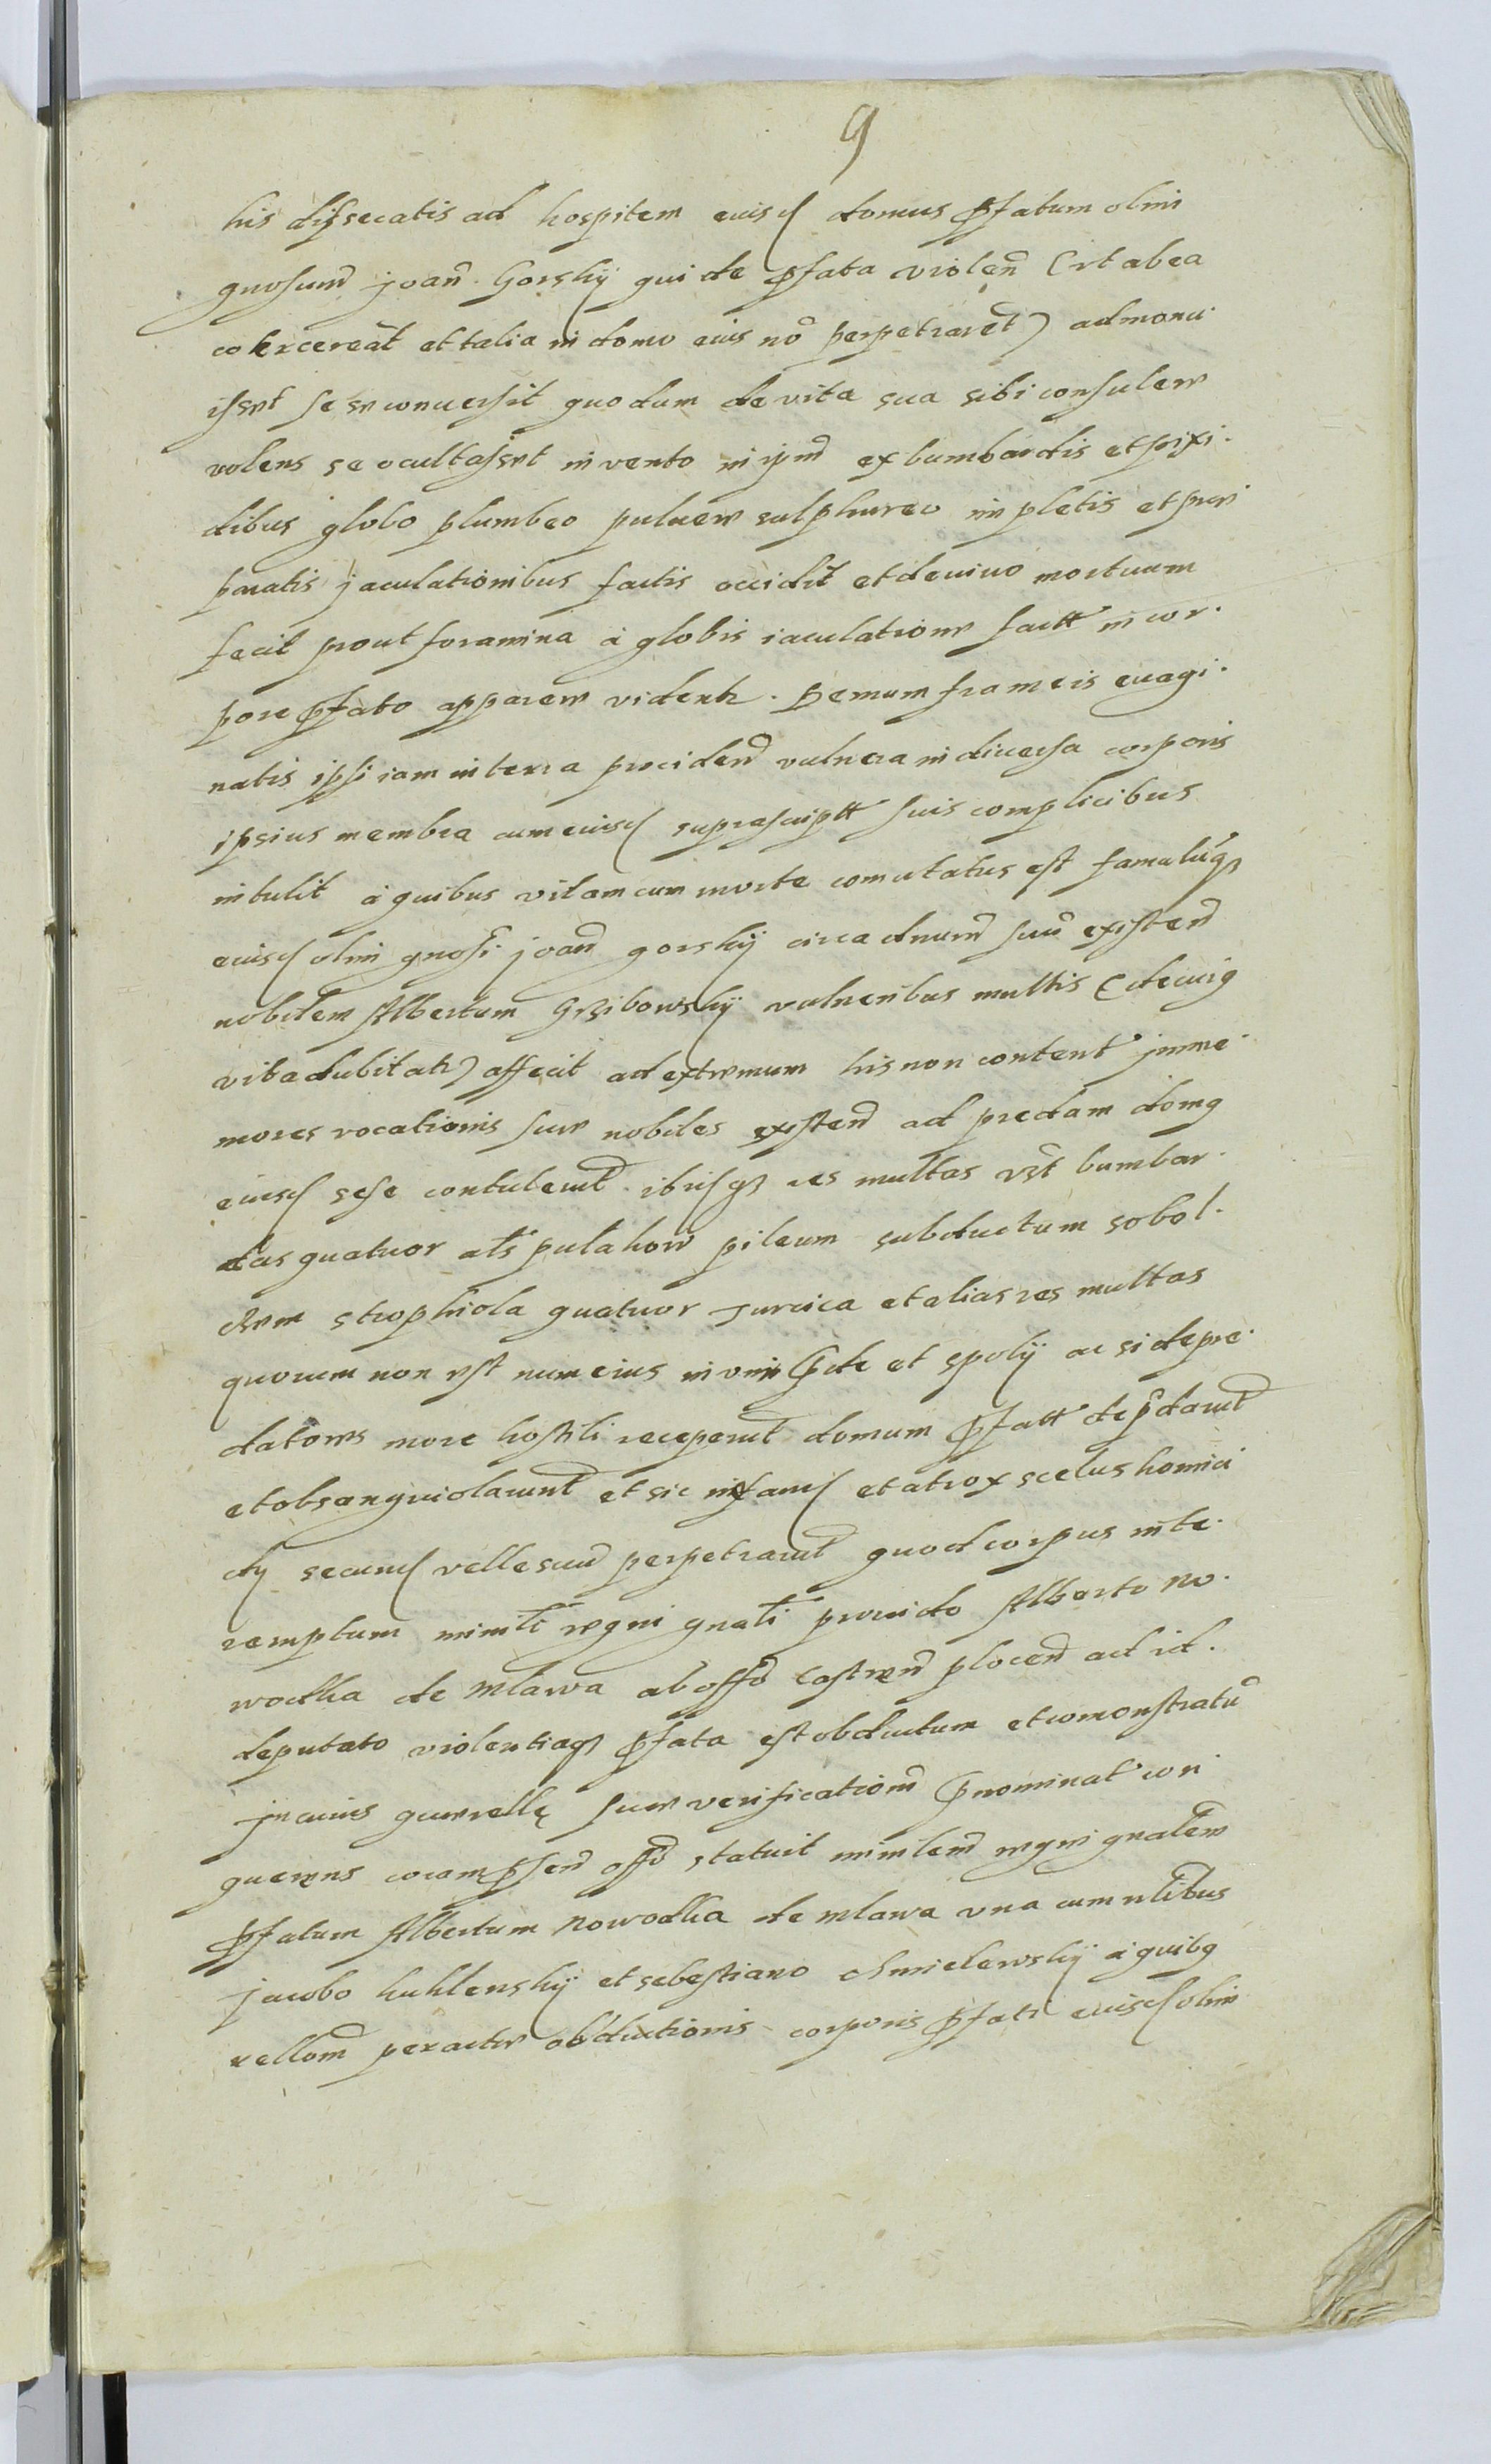 9
his dissecatis ad hospitem eiusd domus pfatum olim
gnosum Joan Gorskÿ qui de pfata violen (vt ab ea
cohercereat et talia in domo eius no perpetraret) admonu
isset se se conuersit quo dum de vita sua sibi consulere
volens se ocultasset invento in ipm ex bumbardis et pixi
dibus globo plumbeo puluere sulphureo impletis et pre
paratis jaculationibus factis occidit et de viuo mortuum
fecit prout foramina à globis iaculatione factt in cor
pore pfato apparere videntr. Demum frameis euagi
natis ipsi iam in terra prociden vulnera in diuersa corporis
ipsius membra cum eiusd suprascriptt suis complicibus
intulit à quibus vitam cum morte comutatus est famulūqz
eiusd olim gnosi Joan gorskÿ circa dnum suū existen
nobilem Albertum Grzibowskÿ vulneribus multis (de cuig
vita dubitatr) affecit ad extremum his non content imme
mores vocationis sue nobiles existen ad predam domg
eiusd sese contulerut ibiusqz res multas vt bumbar
das quatuor als pulahow pileum subductum sobol
strophiola quatuor Turcica et alias res multas
quorum non est numerus in vim pde et spolÿ ac si depre
datores more hostili receperut domum pfatt depdarut
et obsanguiolarunt et sic infand et atrox scelus homici
dÿ secund velle suu perpetrarut quod corpus inte
remptum ministi regni gnali prouido Alberto No
wodka de Mlawa ab offo Castren plocen ad id
deputato violentiaqz pfata est obductum et comonstratū
In cuius querelle sue verificationem pnominat con
querens coram psen offo statuit minlem regni gnalem
pfatum Albertum Nowodka de mlawa vna cum nlibus
Jacobo kuklenskÿ et Sebestiano Chmielewskÿ à quibg
rellom peracte obductionis corporis pfati eiusd olim